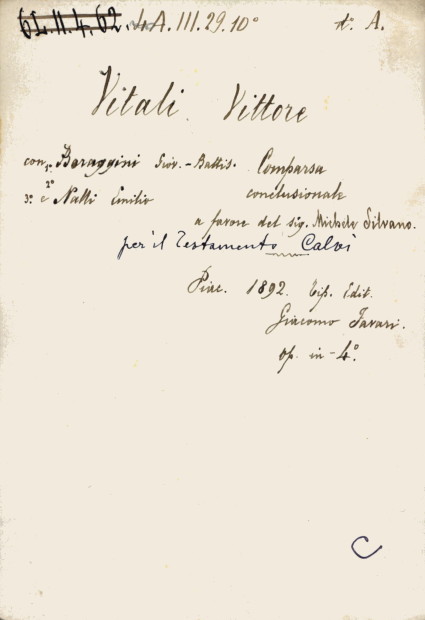 6L.II.4.62. 4A.III.29.10° t° A.
Vitali Vittore
con 1° Beraggini Giov.-Battis. Comparsa
2°
3° e Nalli Emilio conclusionale
a favore del sig. Michele Silvano.
per il Testamento Calvi
Piac. 1892. Tip. Edit.
Giacomo Favari.
op. in-4°.
C